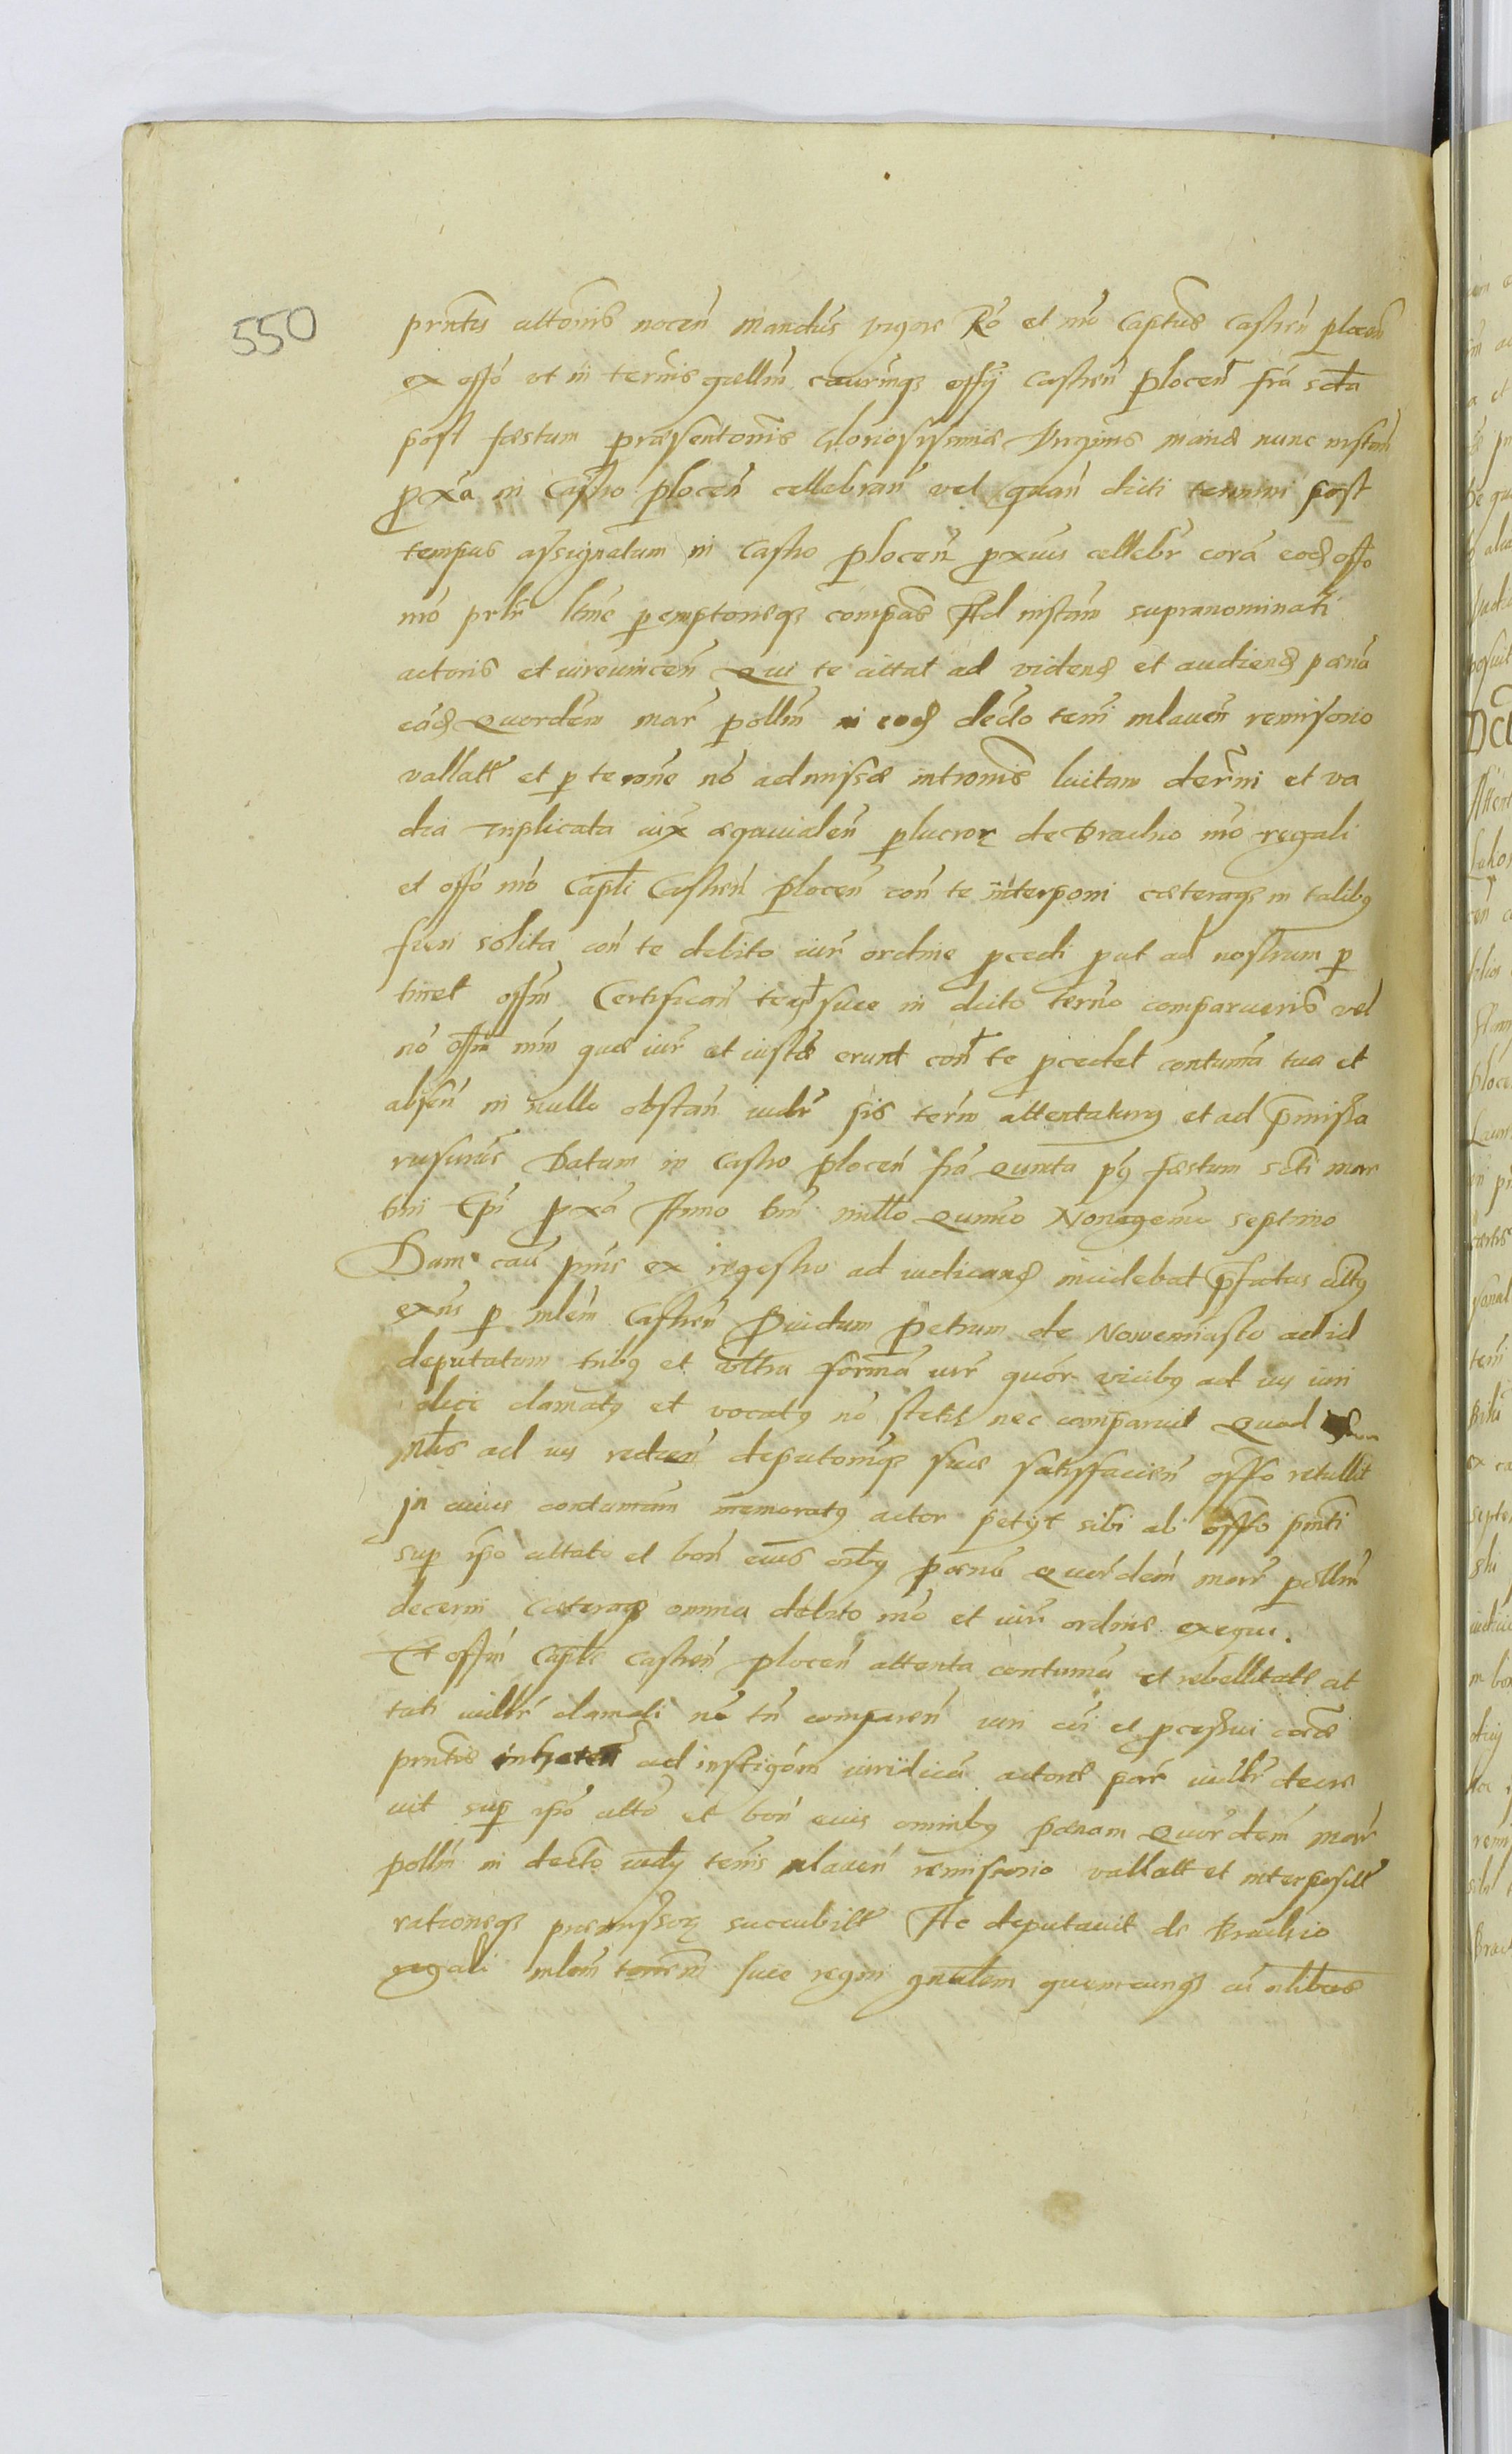 550
prntis cittonis nocen mandus vigore Ro et mo Captus Castren plocen
ex offo ut in ternis qrellm caurumqz offij Castren plocen fra scda
post festum praesentonis Gloriosissimae Virginis mariae nunc instan
pxa in Castro plocen cellebran vel quan dicti termini post
tempus assignatum in Castro plocen pxius cellebr cora eod offo
mo prlr ltme peremptorieqz compas Ad instam supranominati
actoris et iureuincen Qui te cittat ad videnq et audienq poena
eaq quordem mar pollm in eoq decto temi mlauen remissorio
vallatt et p te rone no admissae intromis luitam derni et va
dia triplicata iux aequiualen plucror de Brachio mo regali
et offo mo Captli Castren plocen con te interponi caeteraqz in talibq
fieri solita con te debito iur ordine pcedi put ad nostrum p
tinet offm Certifican te siue in dicto terno comparueris vel
no offm nrm quae iur et iusta erunt con te pcedet contuma tua et
absen in nullo obstan iudr sis term attentaturq et ad pmissa
rusurus Datum in Castro plocen fra quinta pq festum scti mar
tini Epi pxa Anno Dni millo quin Nonagemo septimo
Dum cau pntis ex regestro ad iudicanq incidebat pfatus cittq
exns p mlem Castren Prouidum Petrum de Nowemiasto ad id
deputatum tribq et ultra forma iur quor vicibq ad ius iuri
dice clamatq et vocatq no stetit nec comparuit Quod
mlis ad ius redien deputoniqz suae satisfacien offo retullit
In cuius contumam memoratq actor petijt sibi ab offo pnti
sup ipo cittato et bon eius oibq poena quordem mar pollm
decerni Caeteraqz omnia debito mo et iur ordine exequi.
Et offm Captle Castren plocen attenta contuma et rebellitate cit
tati iudr clamati no tn comparen iuri cui et pcessui cora
prntis inheren ad instigom iuridica actoris par iudr decre
uit sup ipo citto et bon eius omnibq poenam quordem mar
pollm in decto iudq temis mlauen remissorio vallatt et interposit
rationeqz praemissor succubitt Ac deputauit de Brachio
regali mlem terrem siue regni gnalem quemcunqz cu nlibus